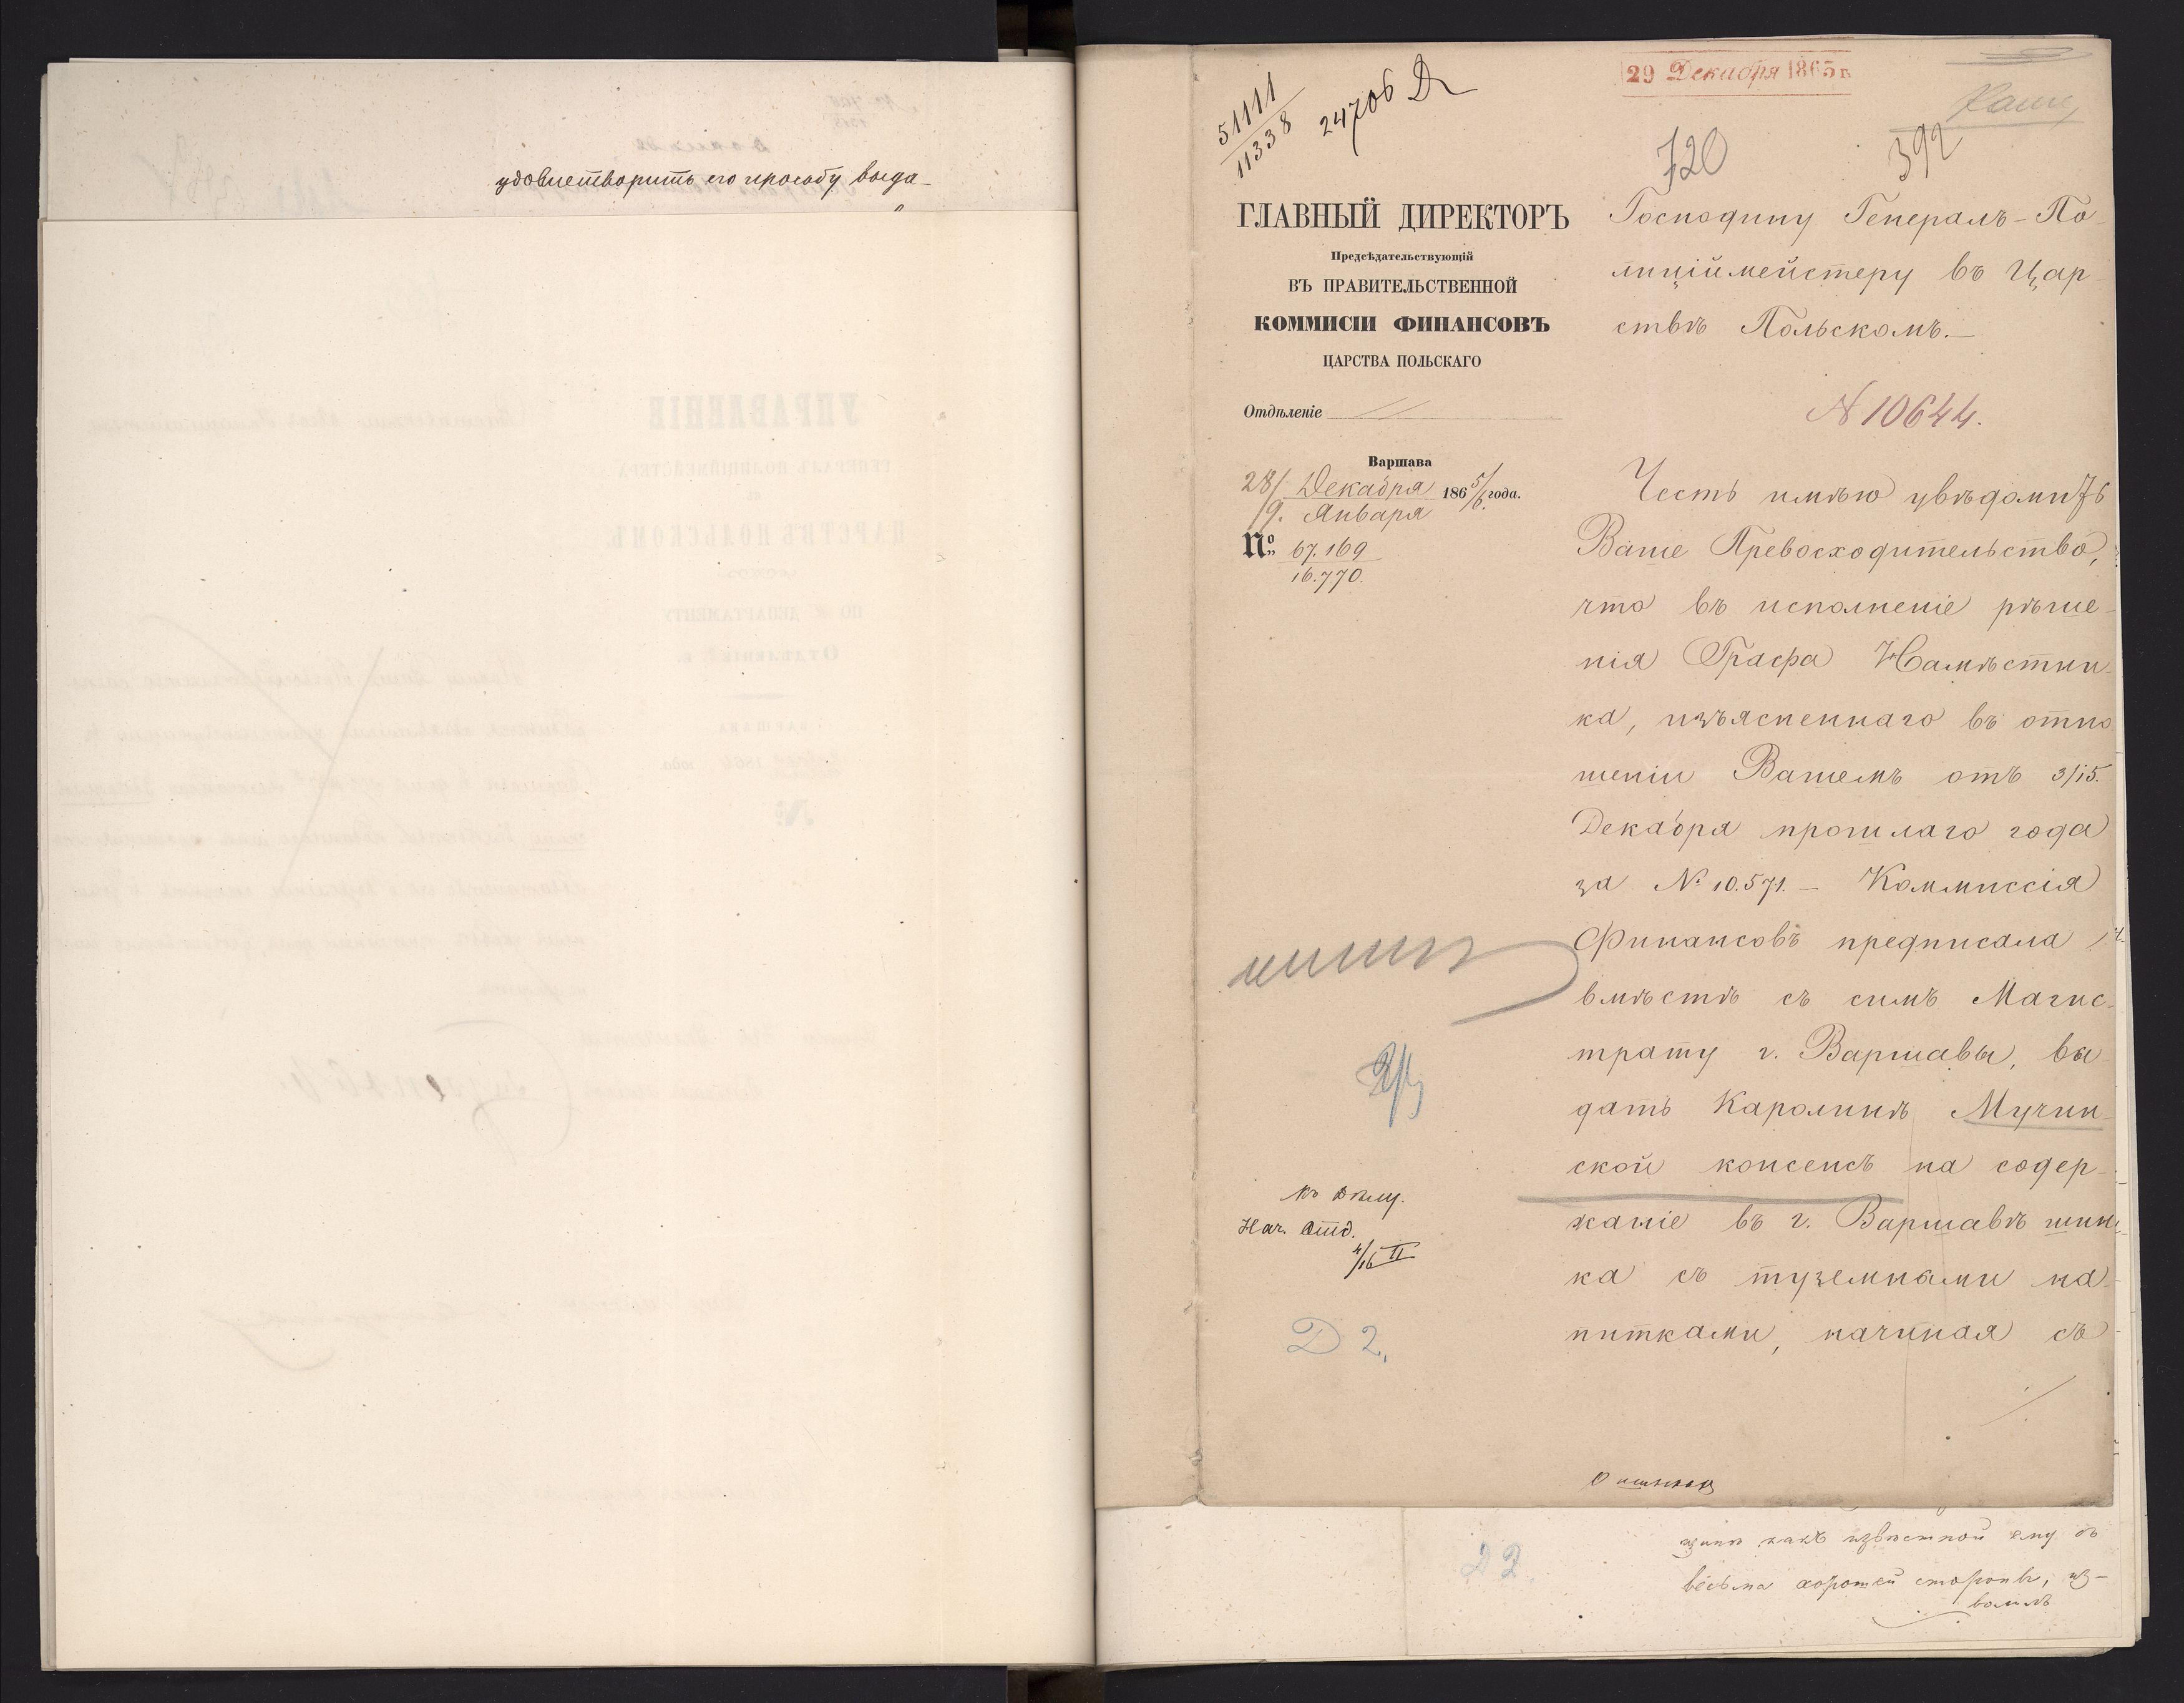 удовлетворить его просьбу выда-
29 Декабря 1865 г.
51111
11338
24706
720
392
ГЛАВНЫЙ ДИРЕКТОРЪ
Предсѣдательствующій
ВЪ ПРАВИТЕЛЬСТВЕННОЙ
КОММИСІИ ФИНАНСОВЪ
ЦАРСТВА ПОЛЬСКАГО
Отдѣленіе
Варшава
28/ Декабря 1865/6 года.
/9. Января
№ 67.169
16.770.
Господину Генералъ-По-
лиціймейстеру въ Цар-
ствѣ Польскомъ.—
N 10644.
Честь имѣю увѣдомить
Ваше Превосходительство,
что въ исполненіе рѣше-
нія Графа Намѣстни-
ка, изъясненнаго въ отно
шеніи Вашемъ отъ 3/15.
Декабря прошлаго года
за № 10.571. — Коммиссія
Финансовъ предписала
вмѣстѣ съ симъ Магис-
трату г. Варшавы, вы-
дать Каролинѣ Мучин-
ской консенсъ на содер-
жаніе въ г. Варшавѣ шин
ка съ туземными на-
питками, начиная съ
къ дѣлу.
Нач. Отд.
4/16 II
Д 2.
О шинках
22
зинѣ какъ извѣстной ему съ
весьма хорошей стороны, из-
волилъ